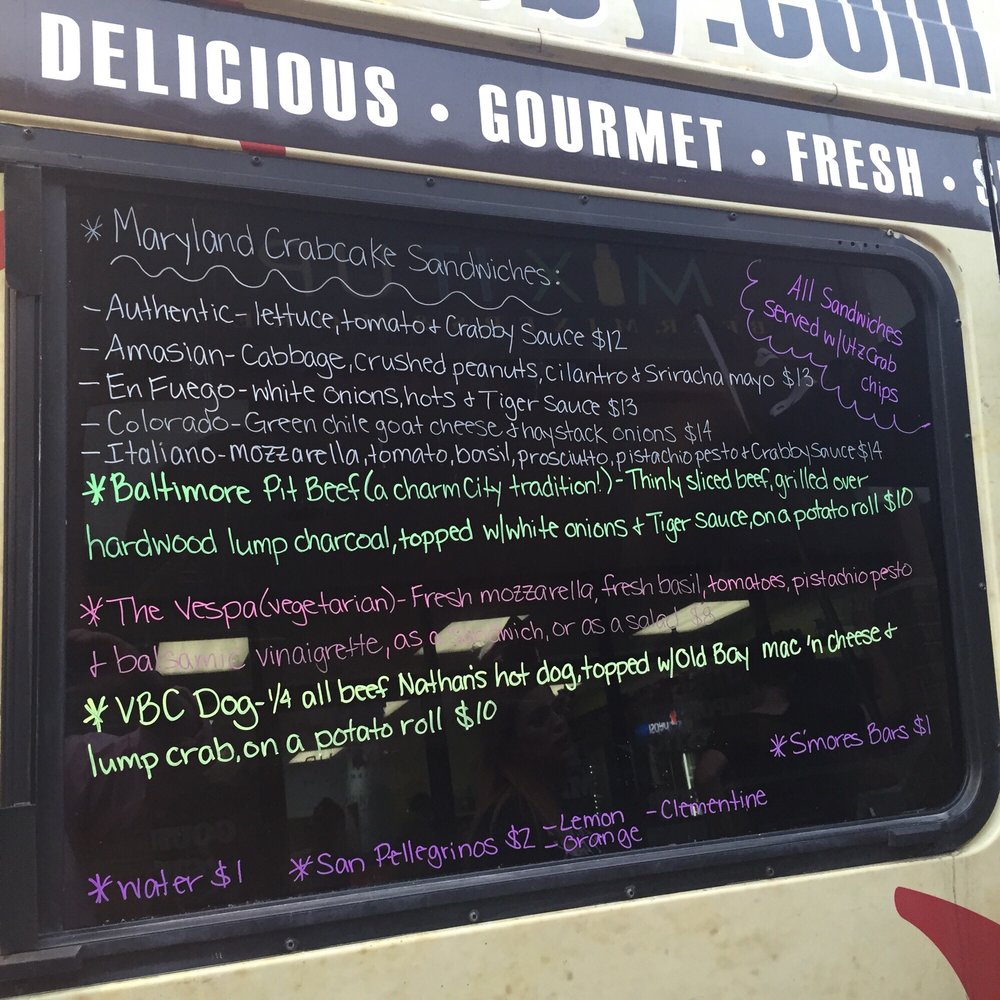 by.com
DELICIOUS • GOURMET • FRESH • S
* Maryland Crabcake Sandwiches:
All Sandwiches
served w/Utz Crab
chips
- Authentic - lettuce, tomato & Crabby Sauce $12
- Amasian - Cabbage, crushed peanuts, cilantro & Sriracha mayo $13
- En Fuego - white onions, hots & Tiger Sauce $13
- Colorado - Green chile goat cheese & haystack onions $14
- Italiano - mozzarella, tomato, basil, prosciutto, pistachio pesto & Crabby Sauce $14
* Baltimore Pit Beef (a charm City tradition!) - Thinly sliced beef, grilled over
hardwood lump charcoal, topped w/white onions & Tiger sauce, on a potato roll $10
* The Vespa (vegetarian) - Fresh mozzarella, fresh basil, tomatoes, pistachio pesto
& balsamic vinaigrette, as a sandwich, or as a salad $8
* VBC Dog - 1/4 all beef Nathan's hot dog, topped w/Old Bay mac 'n cheese &
lump crab, on a potato roll $10
* S'mores Bars $1
* Water $1
* San Pellegrinos $2 - Lemon - Clementine
- Orange